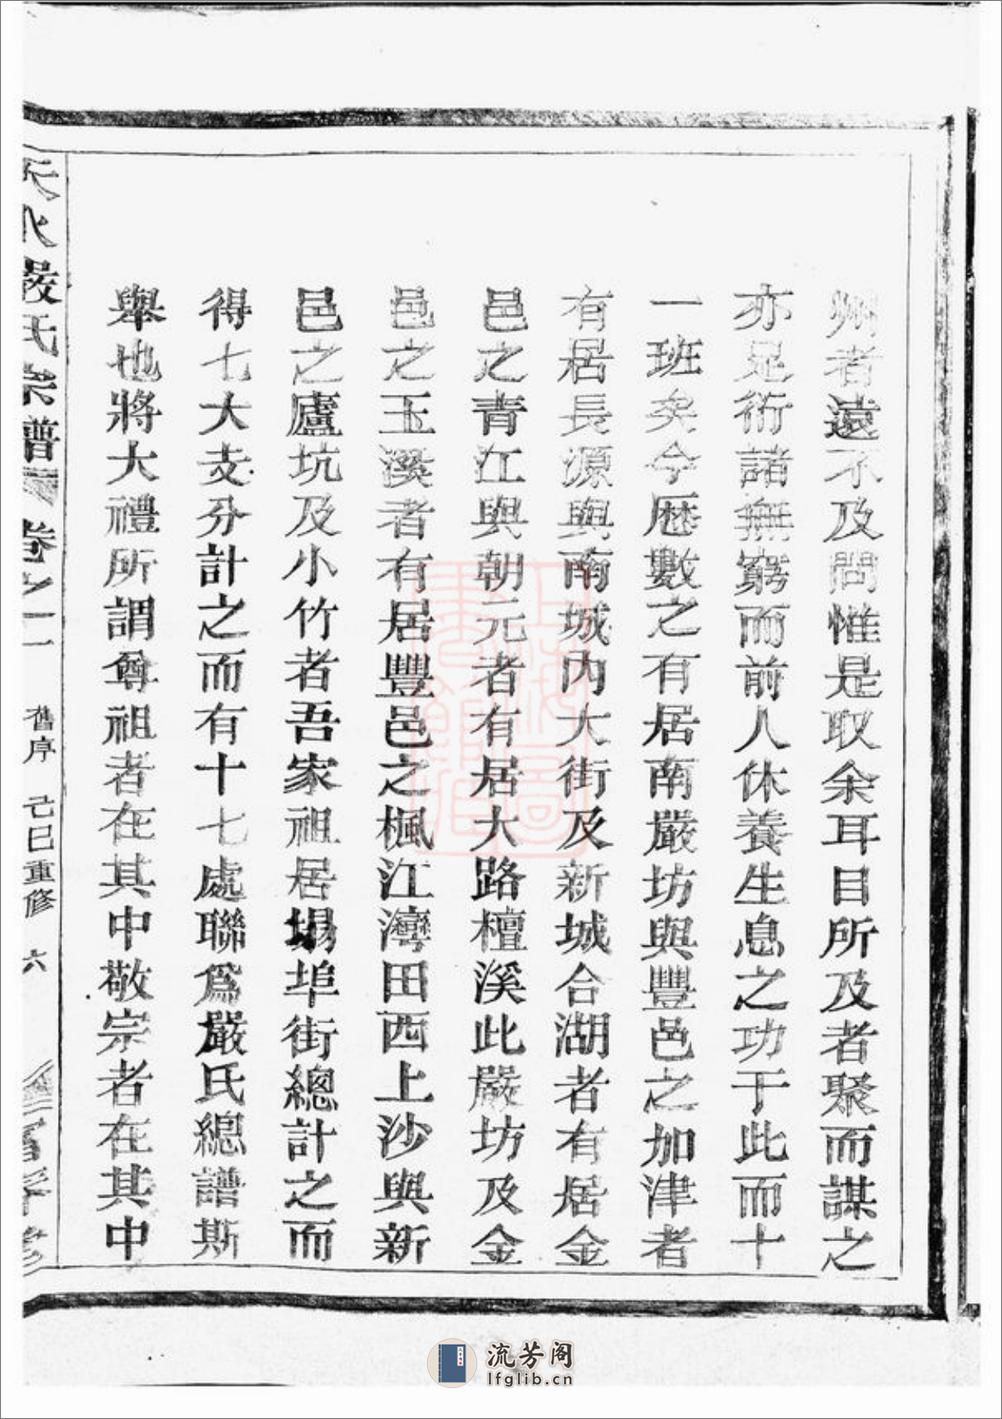 州者遠不及問惟是取余耳目所及者聚而謀之
亦足衍諸無窮而前人休養生息之功于此而十
一班矣今歷數之有居南嚴坊與豐邑之加津者
有居長源與南城內大街及新城合湖者有居金
邑之青江與朝元者有居大路檀溪此嚴坊及金
邑之玉溪者有居豐邑之楓江灣田西上沙與新
邑之廬坑及小竹者吾家祖居埸埠街總計之而
得七大支分計之而有十七處聯爲嚴氏總譜斯
舉也將大禮所謂尊祖者在其中敬宗者在其中
天水嚴氏宗譜 卷之一 舊序 己巳重修 六
上海圖書館藏
流芳阁
lfglib.cn